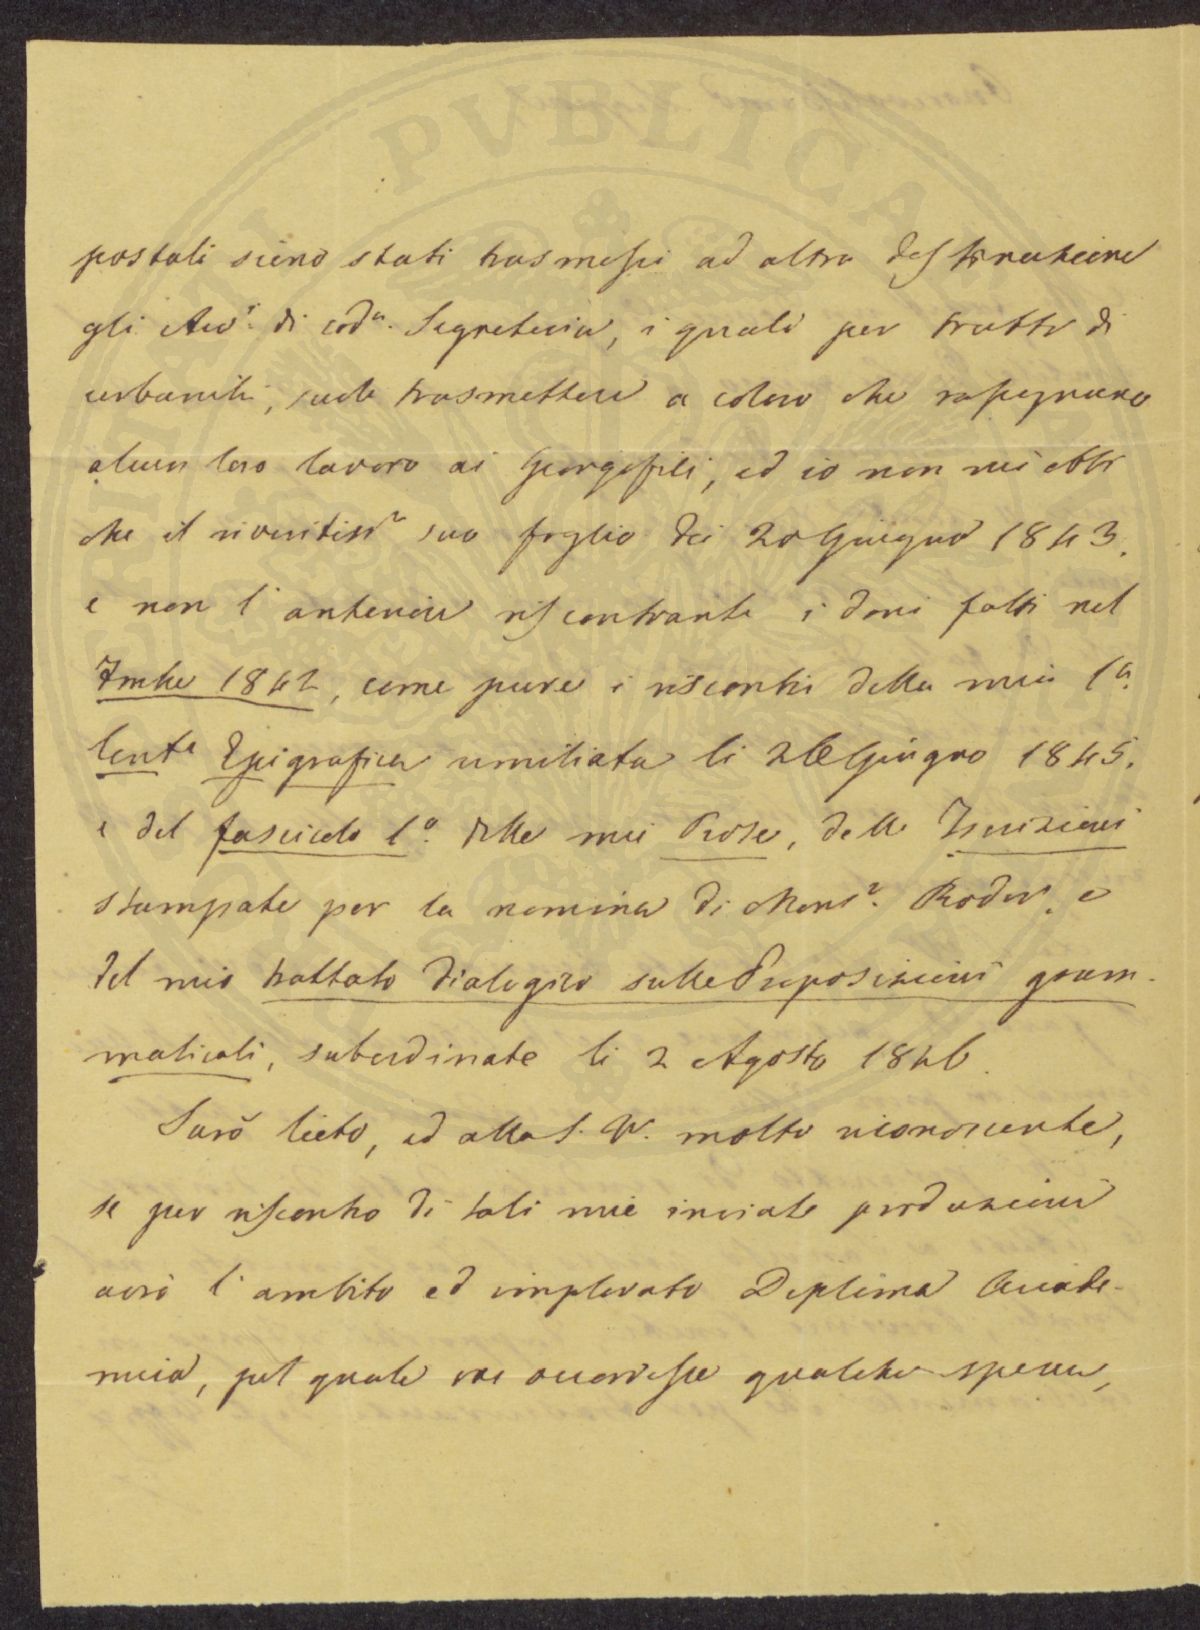 postali sieno stati trasmessi ad altra destinazione
gli Avv.i di cod.a Segreteria, i quali per tratto di
urbanità, suole trasmettere a coloro che rassegnano
alcun loro lavoro ai Georgofili, ed io non mi ebbi
che il riveritiss.o suo foglio dei 20 Giugno 1843.
e non l'anteriore riscontrante i doni fatti nel
7mbre 1842, come pure i riscontri della mia 1a.
Cent.a Epigrafica umiliata li 26 Giugno 1845.
e del fascicolo 1o. delle mie Prose, delle Iscrizioni
stampate per la nomina di Mons.r e
del mio trattato dialogico sulle Preposizioni gram-
maticali, subordinate li 2 Agosto 1846.
Sarò lieto, ed alla S. V. molto riconoscente,
se per riscontro di tali mie inviate produzioni
avrò l'ambito ed implorato Diploma Accade-
mico, pel quale ove occorresse qualche spesa,